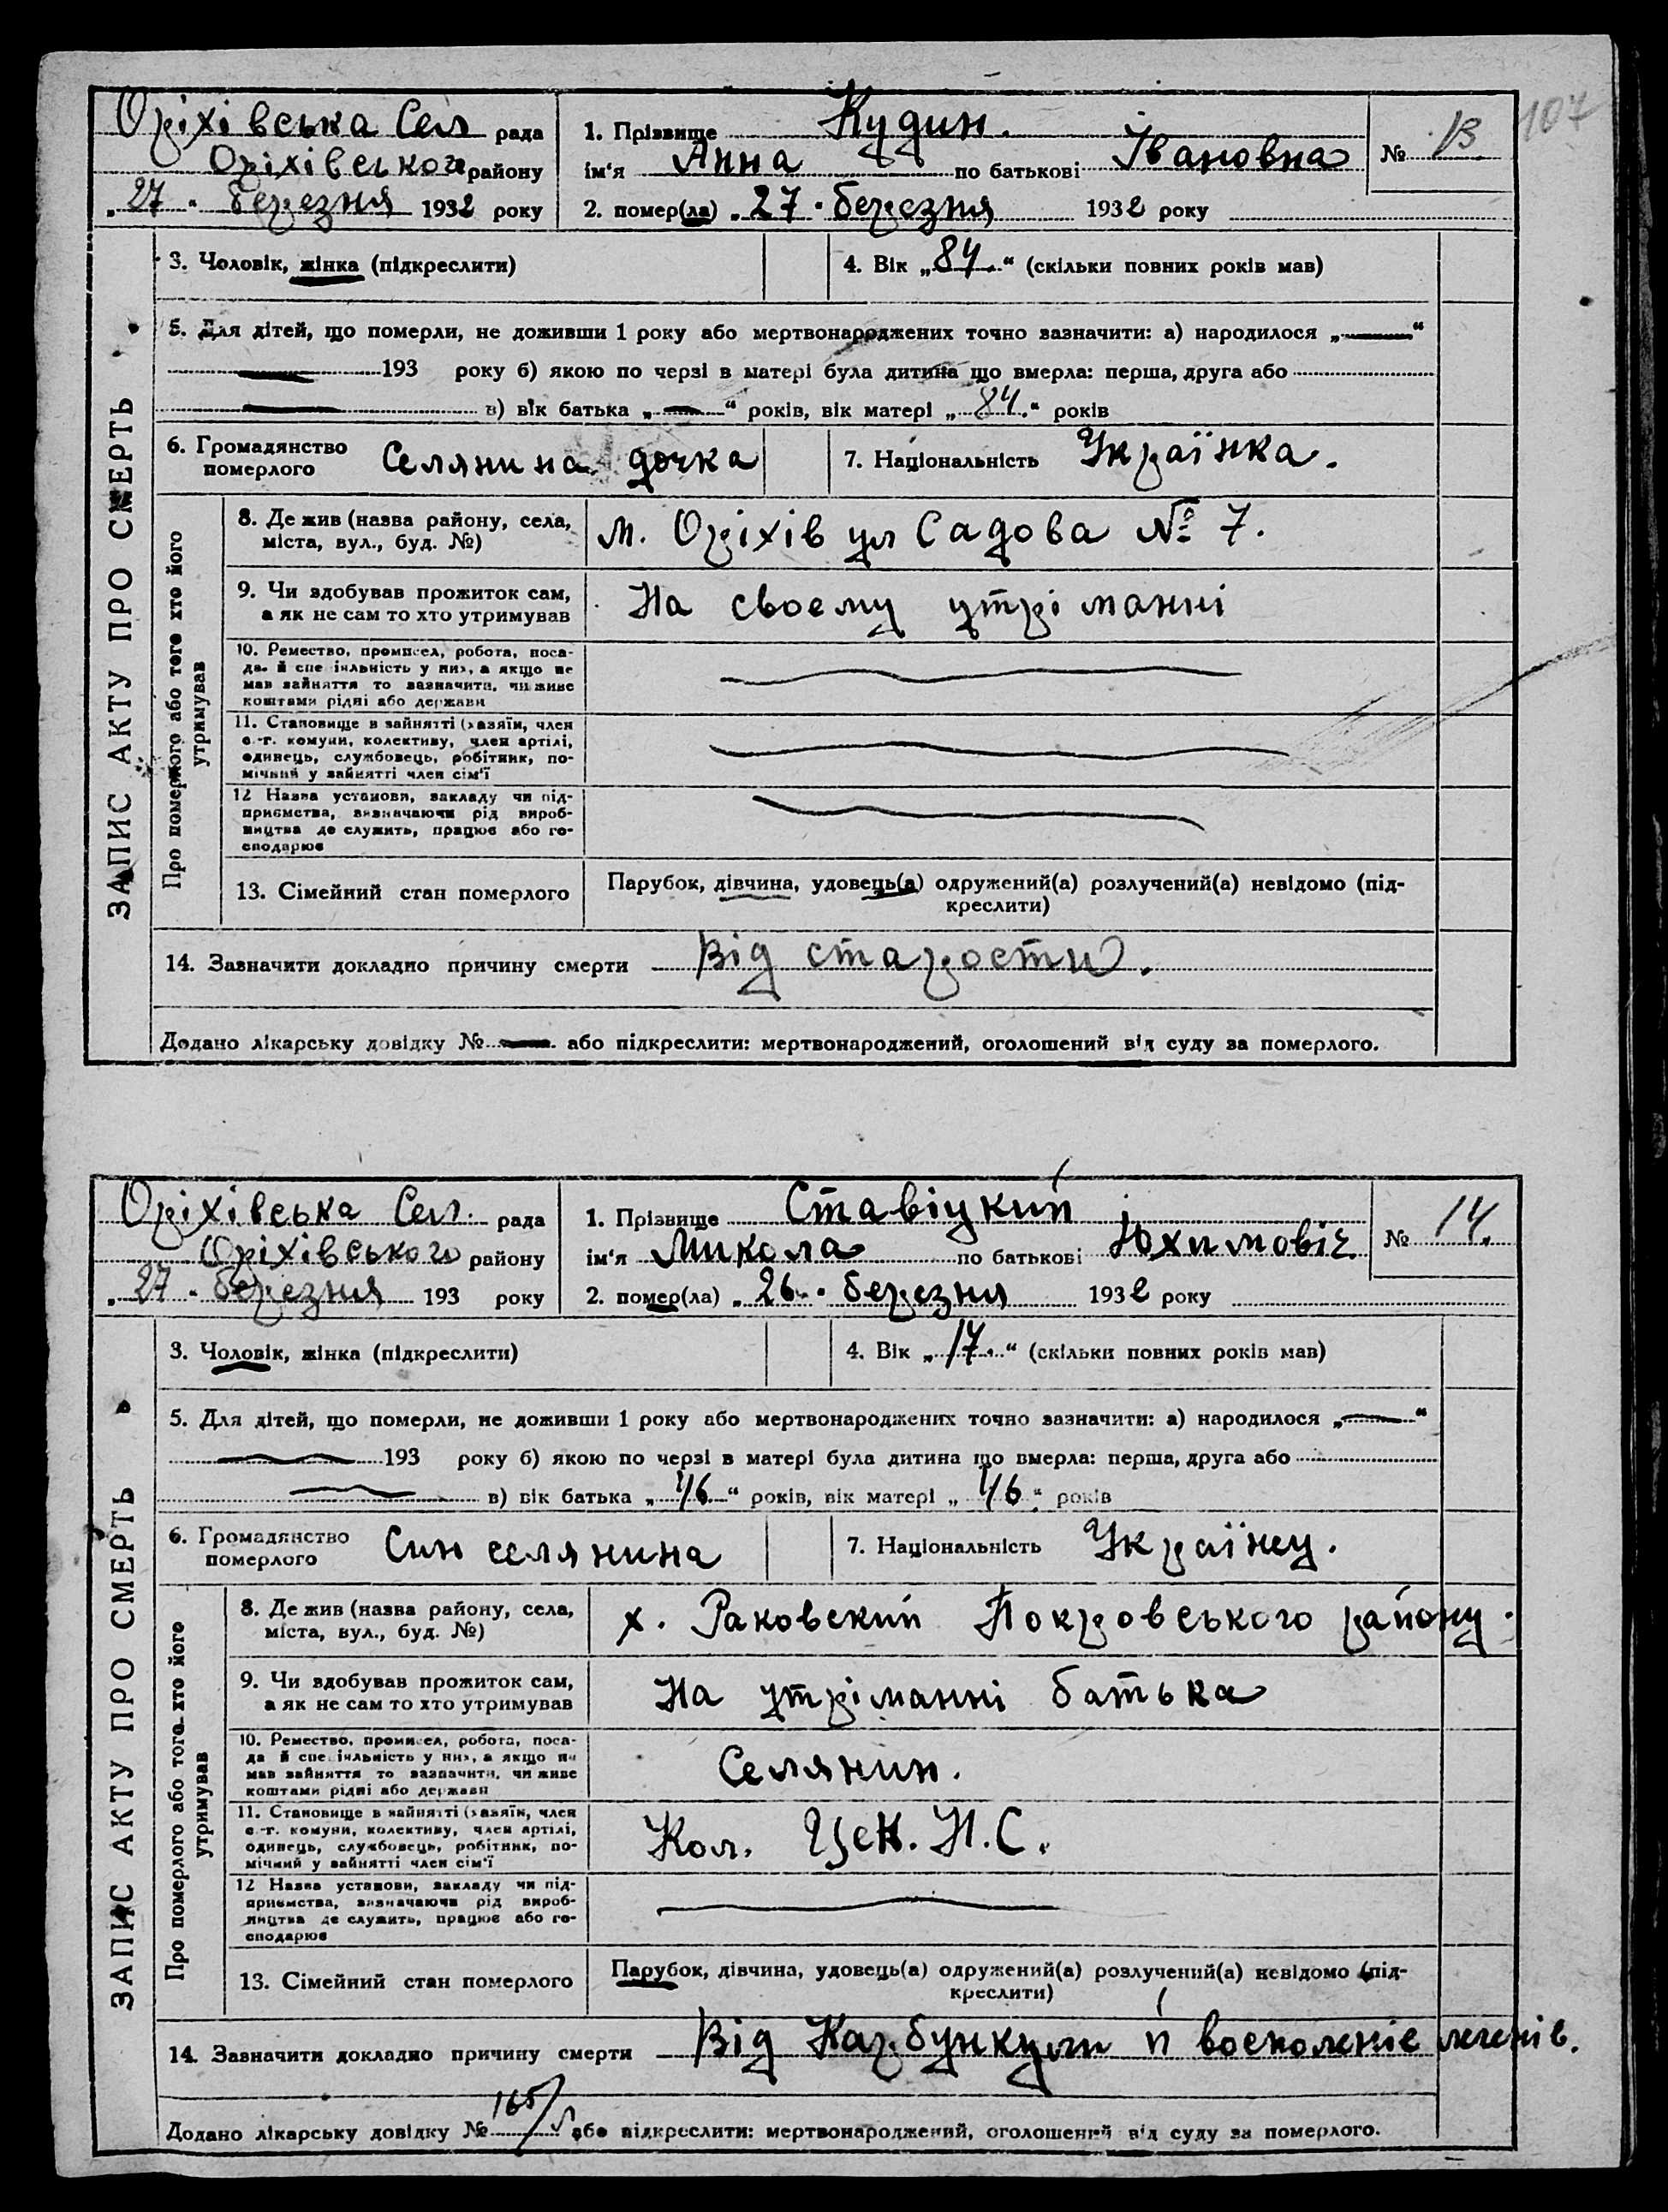 107
Оріхівська Сел рада
Оріхівського району
„27" березня 1932 року
1. Прізвище Кудин.
ім'я Анна по батькові Івановна
№ 13
2. помер(ла) „27" березня 1932 року
ЗАПИС АКТУ ПРО СМЕРТЬ
3. Чоловік, жінка (підкреслити)
4. Вік „84." (скільки повних років мав)
5. Для дітей, що померли, не доживши 1 року або мертвонароджених точно зазначити: а) народилося „—"
— 193 року б) якою по черзі в матері була дитина що вмерла: перша, друга або
— в) вік батька „—" років, вік матері „84." років
6. Громадянство померлого Селянина дочка
7. Національність Українка.
Про померлого або того хто його утримував
8. Де жив (назва району, села,
міста, вул., буд. №)
м. Оріхів ул Садова № 7.
9. Чи здобував прожиток сам,
а як не сам то хто утримував
На своему утріманні
10. Ремество, промисел, робота, поса-
да й спеціяльність у них, а якщо не
мав зайняття то зазначити, чи живе
коштами рідні або держави
11. Становище в зайнятті (хазяїн, член
с.-г. комуни, колективу, член артілі,
одинець, службовець, робітник, по-
мічний у зайнятті член сім'ї
12 Назва установи, закладу чи під-
приємства, визначаючи рід вироб-
ництва де служить, працює або го-
сподарює
13. Сімейний стан померлого
Парубок, дівчина, удовець(а) одружений(а) розлучений(а) невідомо (під-
креслити)
14. Зазначити докладно причину смерти Від старости.
Додано лікарську довідку № — або підкреслити: мертвонароджений, оголошений від суду за померлого.
Оріхівська Сел. рада
Оріхівського району
„27" березня 193 року
1. Прізвище Ставіцкий
ім'я Микола по батькові Юхимовіч
№ 14.
2. помер(ла) „26" березня 1932 року
ЗАПИС АКТУ ПРО СМЕРТЬ
3. Чоловік, жінка (підкреслити)
4. Вік „17." (скільки повних років мав)
5. Для дітей, що померли, не доживши 1 року або мертвонароджених точно зазначити: а) народилося „—"
— 193 року б) якою по черзі в матері була дитина що вмерла: перша, друга або
— в) вік батька „46" років, вік матері „46" років
6. Громадянство померлого Син селянина
7. Національність Українец.
Про померлого або того хто його утримував
8. Де жив (назва району, села,
міста, вул., буд. №)
х. Раковский Покровського району.
9. Чи здобував прожиток сам,
а як не сам то хто утримував
На утріманні батька
10. Ремество, промисел, робота, поса-
да й спеціяльність у них, а якщо не
мав зайняття то зазначити, чи живе
коштами рідні або держави
Селянин.
11. Становище в зайнятті (хазяїн, член
с.-г. комуни, колективу, член артілі,
одинець, службовець, робітник, по-
мічний у зайнятті член сім'ї
Кол. Н.С.
12 Назва установи, закладу чи під-
приємства, визначаючи рід вироб-
ництва де служить, працює або го-
сподарює
13. Сімейний стан померлого
Парубок, дівчина, удовець(а) одружений(а) розлучений(а) невідомо (під-
креслити)
14. Зазначити докладно причину смерти Від Карбункули й восполеніє легенів.
Додано лікарську довідку № 165/5 або підкреслити: мертвонароджений, оголошений від суду за померлого.